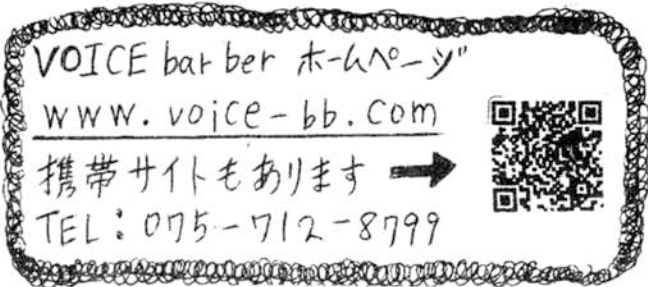 VOICE barber ホームページ
www.voice-bb.com
携帯サイトもあります →
TEL：075-712-8799